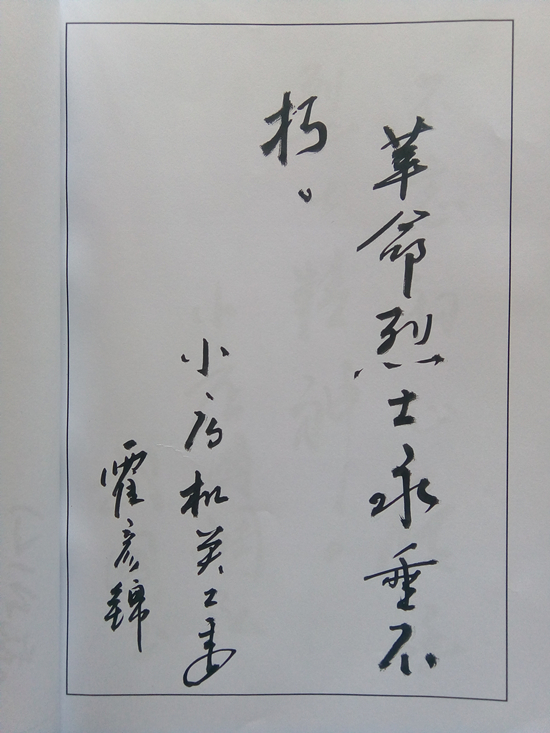 革命烈士永垂不
朽。
小店机关工委
霍彦锦